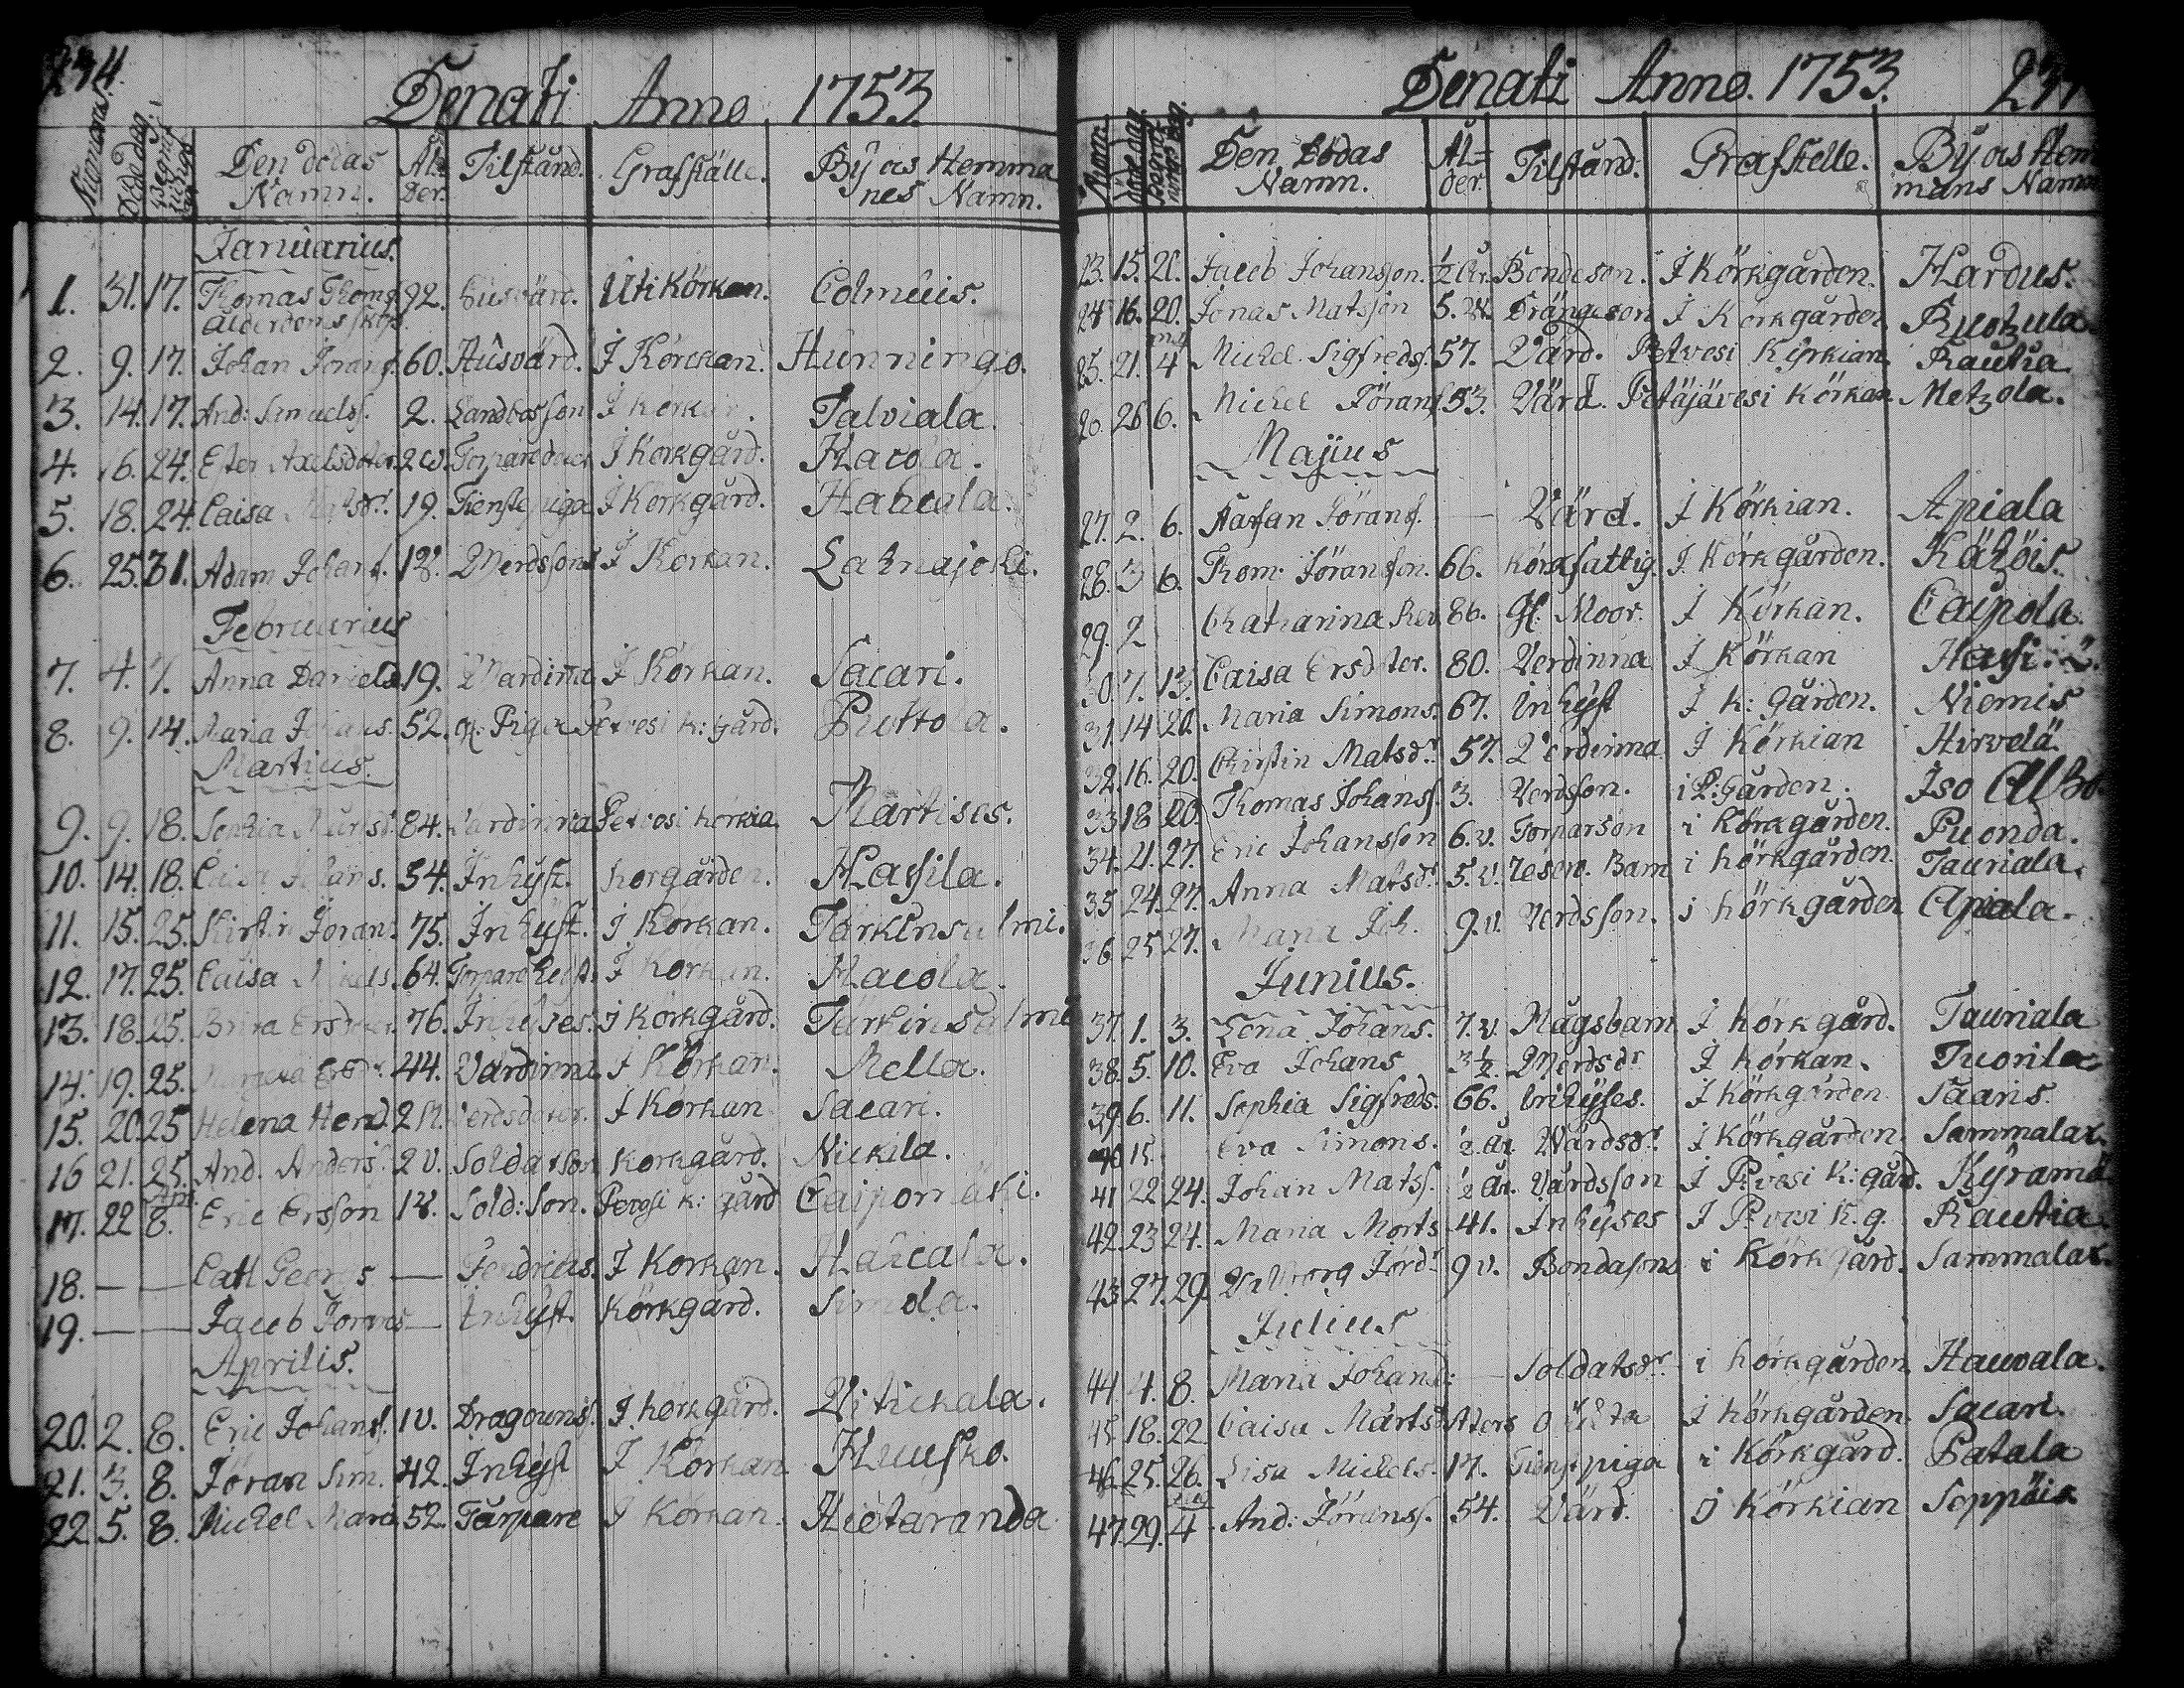 234
Denati Anno 1753
Num̅er Dödedag Begrafnings dag Den dödas Namn. Ålder. Tilstånd. Grafställe. By os Hemmanes Namn.
Januarius.
1. 31. 17. Thomas Thoms. 92. husvärd. Uti Körkan. Colmuis.
ålderdoms
2. 9. 17. Johan Jörans. 60. Husvärd. I Körckan. Hunningo.
3. 14. 17. And: Simuels. 2. Landbosson I Körkan. Talviala.
4. 16. 24. Ester Axelsdotter. 2 w. Torparedotter I Körkgård. Hacola.
5. 18. 24. Caisa Matsdr. 19. Tienstepiga I Körkgård. Haucala.
6. 25. 31. Adam Johans. 12. Werdssons I Korkan. Lahnajoki.
Februarius
7. 4. 7. Anna Daniels 19. Wärdinna I Körkan. Sacari.
8. 9. 14. Maria Johans. 52. gl. Piga Petvesi k: gård. Puttola.
Martius.
9. 9. 18. Sophia 84. Wärdinna Petvesi körkia. Martises.
10. 14. 18. Caisa Johans. 54. Inhyst. korgården. Hassila.
11. 15. 25. Kirstin Jörans. 75. Inhyst. I Korkan. Tärkinsalmi.
12. 17. 25. Caisa Mikels. 64. Torpare hust. I Korkan. Hacola.
13. 18. 25. Brita Ersdotter. 76. Inhyses. I Körkgård. Tärkinsalmi
14. 19. 25. Ersdr. 44. Värdinna I Körkan. Mella.
15. 20. 25 Helena Hend. 2 Verdsdoter. I Korkan Sacari.
16 21. 25. And. Anders. 2 v. Soldatson Korkgård. Nickila.
17. 22 Apr. 8. Eric Ersson 12. Sold: Son. Petvesi k: gård Caiponmäki.
18. — — Cath Georgs — Fendricks. I Korkan. Haucala.
19. — — Jacob Jörans — Inhyst. Körkgård. Simola.
Aprilis.
20. 2. 8. Eric Johans. 1 v. Dragouns. I körkgård. Vitickala.
21. 3. 8. Jöran Sim. 42. Inhyst I Körkan Huusko.
22 5. 8. Michel 52. Tärpare I Körkan. Hietaranda
Denati Anno. 1753.
Num. Döde dag. Begrafnings dag. Den Dödas Namn. Ålder. Tilstånd. Grafstelle. By os Hemmans Namn
23. 15. 20. Jacob Johansson. ½ År. Bondeson. I Körkgården. Hardus.
24. 16. 20. Jonas Matsson 5. w. Drängeson I Körkgården Ruokula.
25. 21. 4 Michel Sigfreds. 57. Värd. Petvesi Kiörkian. Rautia
26. 26 6. Michel Jörans. 53. Värd. Petäjävesi Körkan Metzola.
Majius
27. 2. 6. Jörans. — Värd. I Körkian. Apiala
28. 3 6. Thom: Göransson. 66. Körkfattig. I Körkgården. Kähöis.
29. 2 Chatharina 86. Gl. Moor. I Körkan. Caipola.
30. 7. 13. Caisa Ersdoter. 80. Verdinna I Körkan
31. 14 20. Maria Simons. 67. Inhyst I k: gården. Niemis
32. 16. 20. Christin Matsdr. 57. Verdinna I Körkian Hirvelä.
33 18 20. Thomas Johanss. 3. Verdson. i P: Gården. Iso
34. 21. 27. Eric Johansson 6. v. Torparson i Körkgården. Puonda.
35 24. 27. Anna Matsdr. 5. v. Resen. Barn i körkgården. Tauriala.
36 25 27. Maria Joh. 9. v. Verdsson. i körkgården Apiala.
Junius.
37. 1. 3. Lena Johans. 7. v. Mågsbarn I Körkgård. Tauriala
38. 5. 10. Eva Johans 3½ Werdsdr I körkan. Tuorila
39. 6. 11. Sophia Sigfreds. 66. Inhyses. I Körkgården. Saaris.
40 15. Eva Simons. ½ år. Wärdsdr. I Körkgården. Sammalax.
41 22 24. Johan Mats. ½ år. Värdsson I P.vesi k: gård. Kyrämä
42. 23 24. Maria Morts 41. Inhyses I P.vesi k. g. Rautia.
43 27. 29. Valborg Jörd. 9 v. Bondasons i Körkgård. Sammalax.
Julius
44 4. 8. Maria Johans: — Soldatsdr. i körkgården. Hauvala.
45. 18. 22 Caisa Mårts. I körkgården. Sacari.
46. 25. 26. Lisa Michels. 17. Tienstpiga i Körkgård. Patala
47. 29. 4. And: Jöranss. 54. Värd. I Körkian Seppäis.